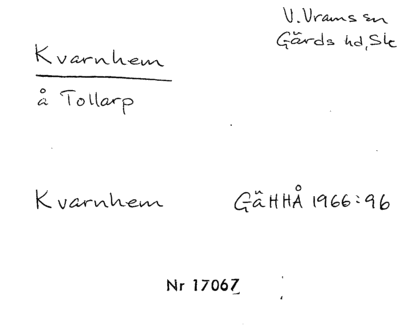 V. Vrams sn
Gärds hd, Sk
Kvarnhem
å Tollarp
Kvarnhem GäHHÅ 1966:96
Nr 17067